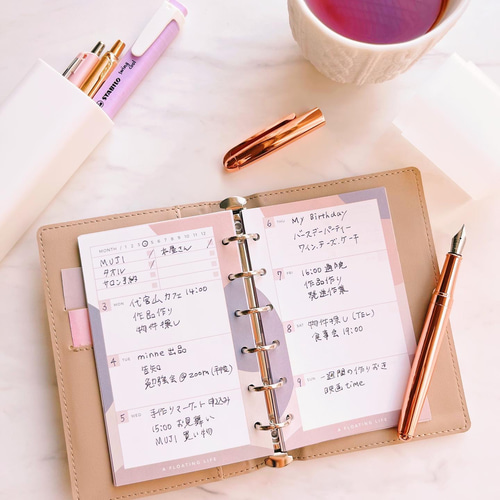 STABILO
swing cool
MONTH 1 2 3 4 5 6 7 8 9 10 11 12
MUJI
タオル
本屋さん
3 MON
代官山カフェ 14:00
作品作り
物件探し
4 TUE
minne 出品
勉強会@zoom
5 WED
手作りマーケット申込み
15:00 お見舞い
MUJI 買い物
A FLOATING LIFE
6 THU
My Birthday
バースデーパーティー
ワイン・チーズ・ケーキ
7 FRI
16:00
作品作り
発送作業
8 SAT
物件探し(TEL)
食事会 19:00
9 SUN
一週間の作りおき
映画 time
A FLOATING LIFE